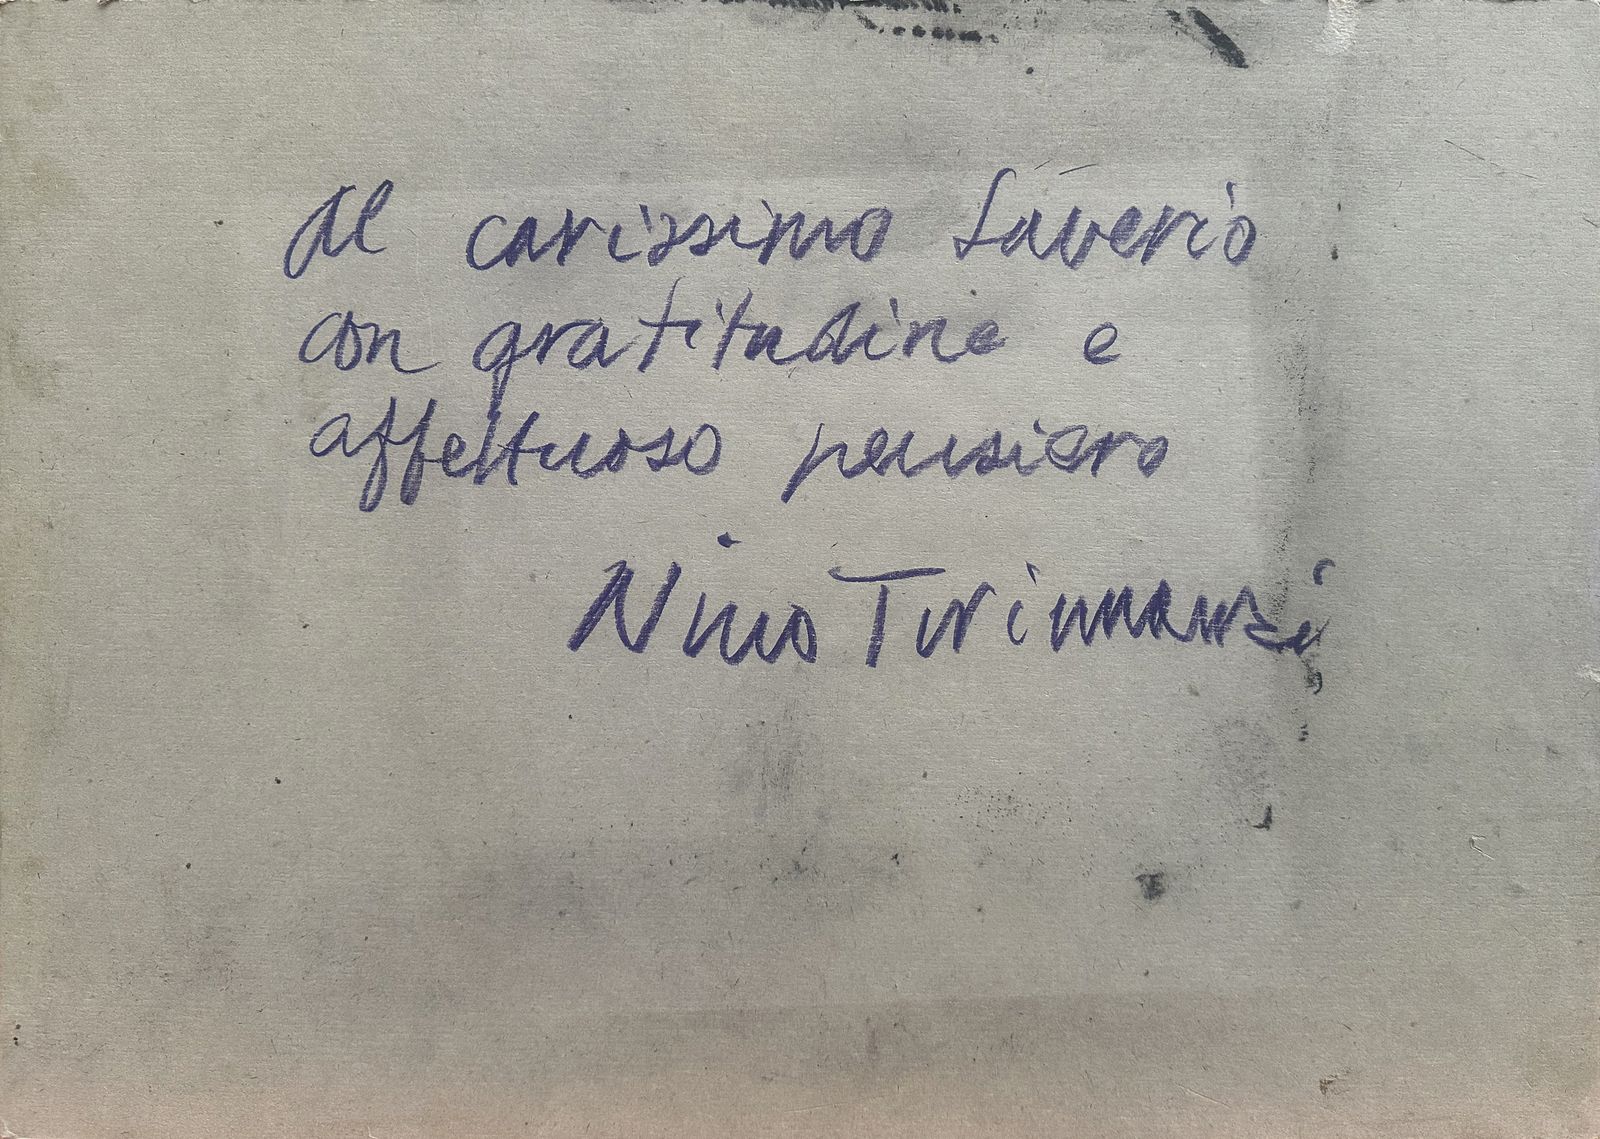 Al carissimo Saverio
con gratitudine e
affettuoso pensiero
Nino Tirinnanzi